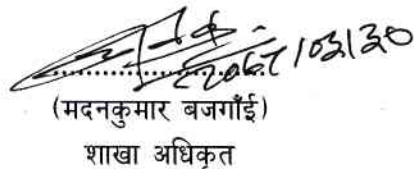 2067/03/30
(मदनकुमार बजगाँई)
शाखा अधिकृत